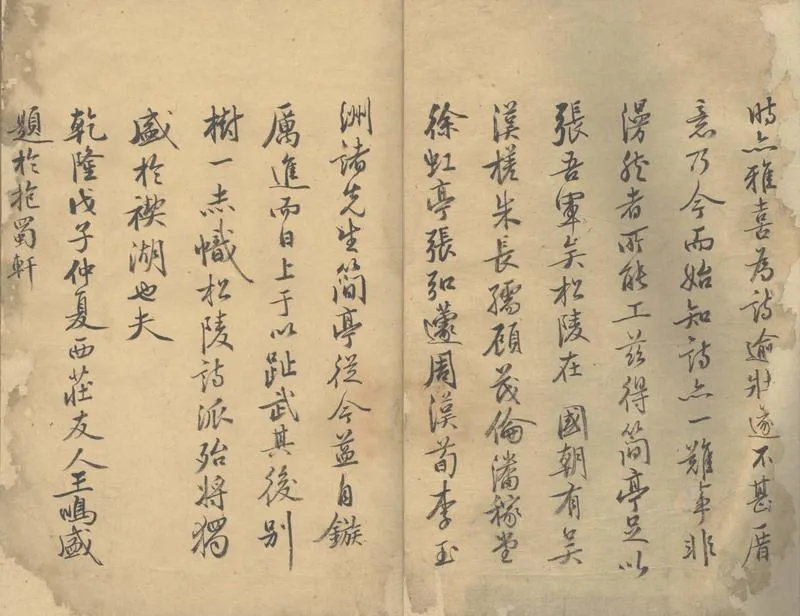 時亦雅喜為詩逾壯遂不甚厝
意乃今而始知詩亦一難事非
漫然者所能工茲得簡亭足以
張吾軍矣松陵在國朝有吳
漢槎朱長孺顧茂倫潘稼堂
徐虹亭張弘蘧周漢荀李玉
洲諸先生簡亭從今益自鏃
厲進而日上于以趾武其後別
樹一赤幟松陵詩派殆將獨
盛於禊湖也夫
乾隆戊子仲夏西莊友人王鳴盛
題於抱蜀軒